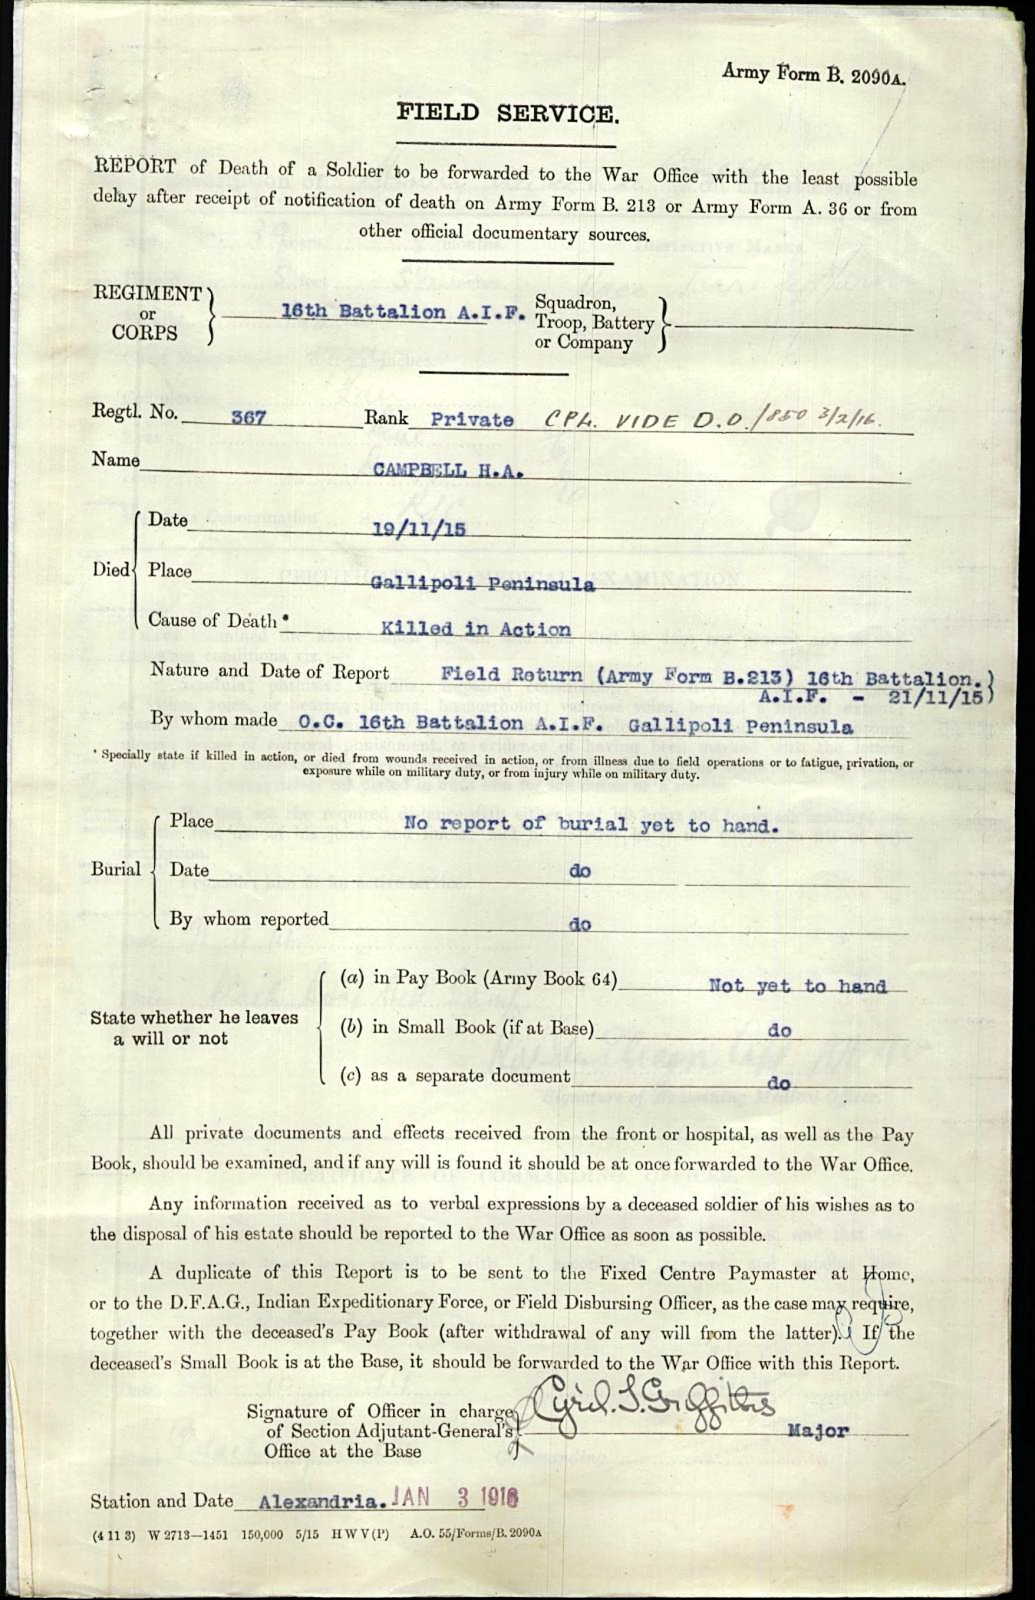 Army Form B. 2090A.
FIELD SERVICE.
REPORT of Death of a Soldier to be forwarded to the War Office with the least possible
delay after receipt of notification of death on Army Form B. 213 or Army Form A. 36 or from
other official documentary sources.
REGIMENT or CORPS } 16th Battalion A.I.F. Squadron, Troop, Battery or Company }
Regtl. No. 367 Rank Private CPL. VIDE D.O./850 3/2/16.
Name CAMPBELL H.A.
Died { Date 19/11/15
Place Gallipoli Peninsula
Cause of Death * Killed in Action
Nature and Date of Report Field Return (Army Form B.213) 16th Battalion.)
A.I.F. - 21/11/15)
By whom made O.C. 16th Battalion A.I.F. Gallipoli Peninsula
* Specially state if killed in action, or died from wounds received in action, or from illness due to field operations or to fatigue, privation, or
exposure while on military duty, or from injury while on military duty.
Burial { Place No report of burial yet to hand.
Date do
By whom reported do
State whether he leaves a will or not { (a) in Pay Book (Army Book 64) Not yet to hand
(b) in Small Book (if at Base) do
(c) as a separate document do
All private documents and effects received from the front or hospital, as well as the Pay
Book, should be examined, and if any will is found it should be at once forwarded to the War Office.
Any information received as to verbal expressions by a deceased soldier of his wishes as to
the disposal of his estate should be reported to the War Office as soon as possible.
A duplicate of this Report is to be sent to the Fixed Centre Paymaster at Home,
or to the D.F.A.G., Indian Expeditionary Force, or Field Disbursing Officer, as the case may require,
together with the deceased's Pay Book (after withdrawal of any will from the latter). If the
deceased's Small Book is at the Base, it should be forwarded to the War Office with this Report.
Signature of Officer in charge
of Section Adjutant-General's
Office at the Base } Cyril. T. Griffiths Major
Station and Date Alexandria. JAN 3 1916
(4 11 3) W 2713—1451 150,000 5/15 H W V (P) A.O. 55/Forms/B. 2090A